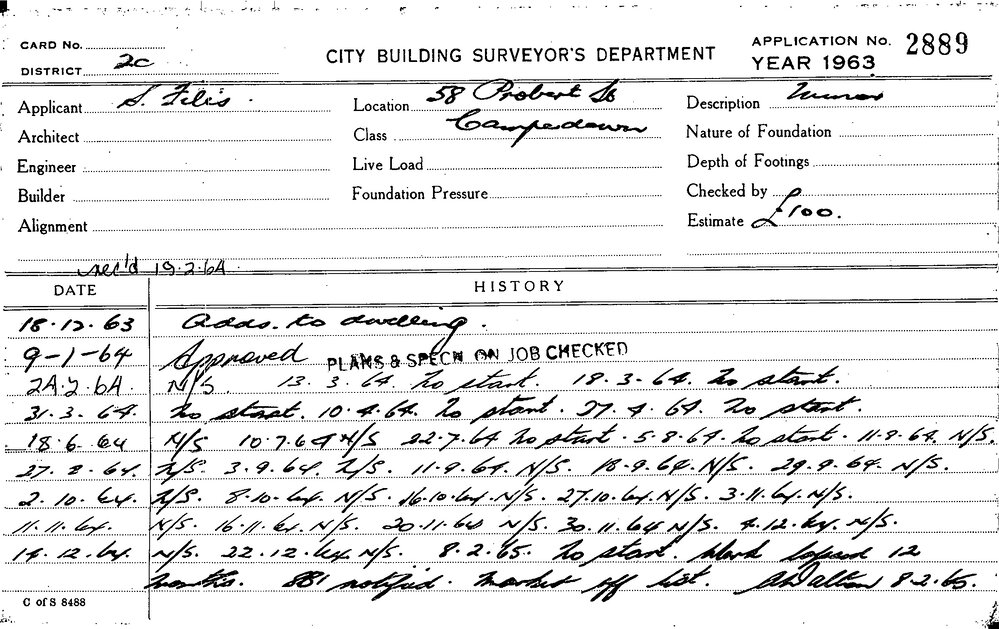 CARD No.
CITY BUILDING SURVEYOR'S DEPARTMENT
APPLICATION No. 2889
DISTRICT 2c
YEAR 1963
Applicant S. Filis.
Location 58 Probert St
Description Minor
Architect
Class Camperdown
Nature of Foundation
Engineer
Live Load
Depth of Footings
Builder
Foundation Pressure
Checked by
Alignment
Estimate £100.
rec'd 19.2.64
DATE
HISTORY
18.12.63 Adds. to dwelling.
9-1-64 Approved PLANS & SPECN ON JOB CHECKED
24.2.64. N/S. 13.3.64. No start. 18.3.64. No start.
31.3.64. No start. 10.4.64. No start. 27.4.64. No start.
18.6.64 N/S 10.7.64 N/S 22.7.64 No start. 5.8.64. No start. 11.8.64. N/S.
27.8.64. N/S. 3.9.64. N/S. 11.9.64. N/S. 18.9.64. N/S. 29.9.64. N/S.
2.10.64. N/S. 8.10.64. N/S. 16.10.64. N/S. 27.10.64. N/S. 3.11.64. N/S.
11.11.64. N/S. 16.11.64. N/S. 20.11.64 N/S. 30.11.64 N/S. 4.12.64. N/S.
14.12.64. N/S. 22.12.64. N/S. 8.2.65. No start. Work lapsed 12
months. notified. Marked off list. 8.2.65.
C of S 8488